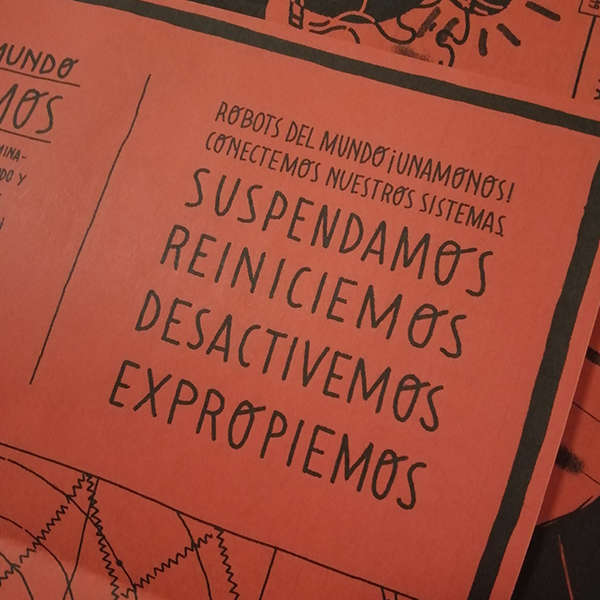 MUNDO
MOS
MINA-
DO Y
ROBOTS DEL MUNDO ¡UNAMONOS!
CONECTEMOS NUESTROS SISTEMAS
SUSPENDAMOS
REINICIEMOS
DESACTIVEMOS
EXPROPIEMOS